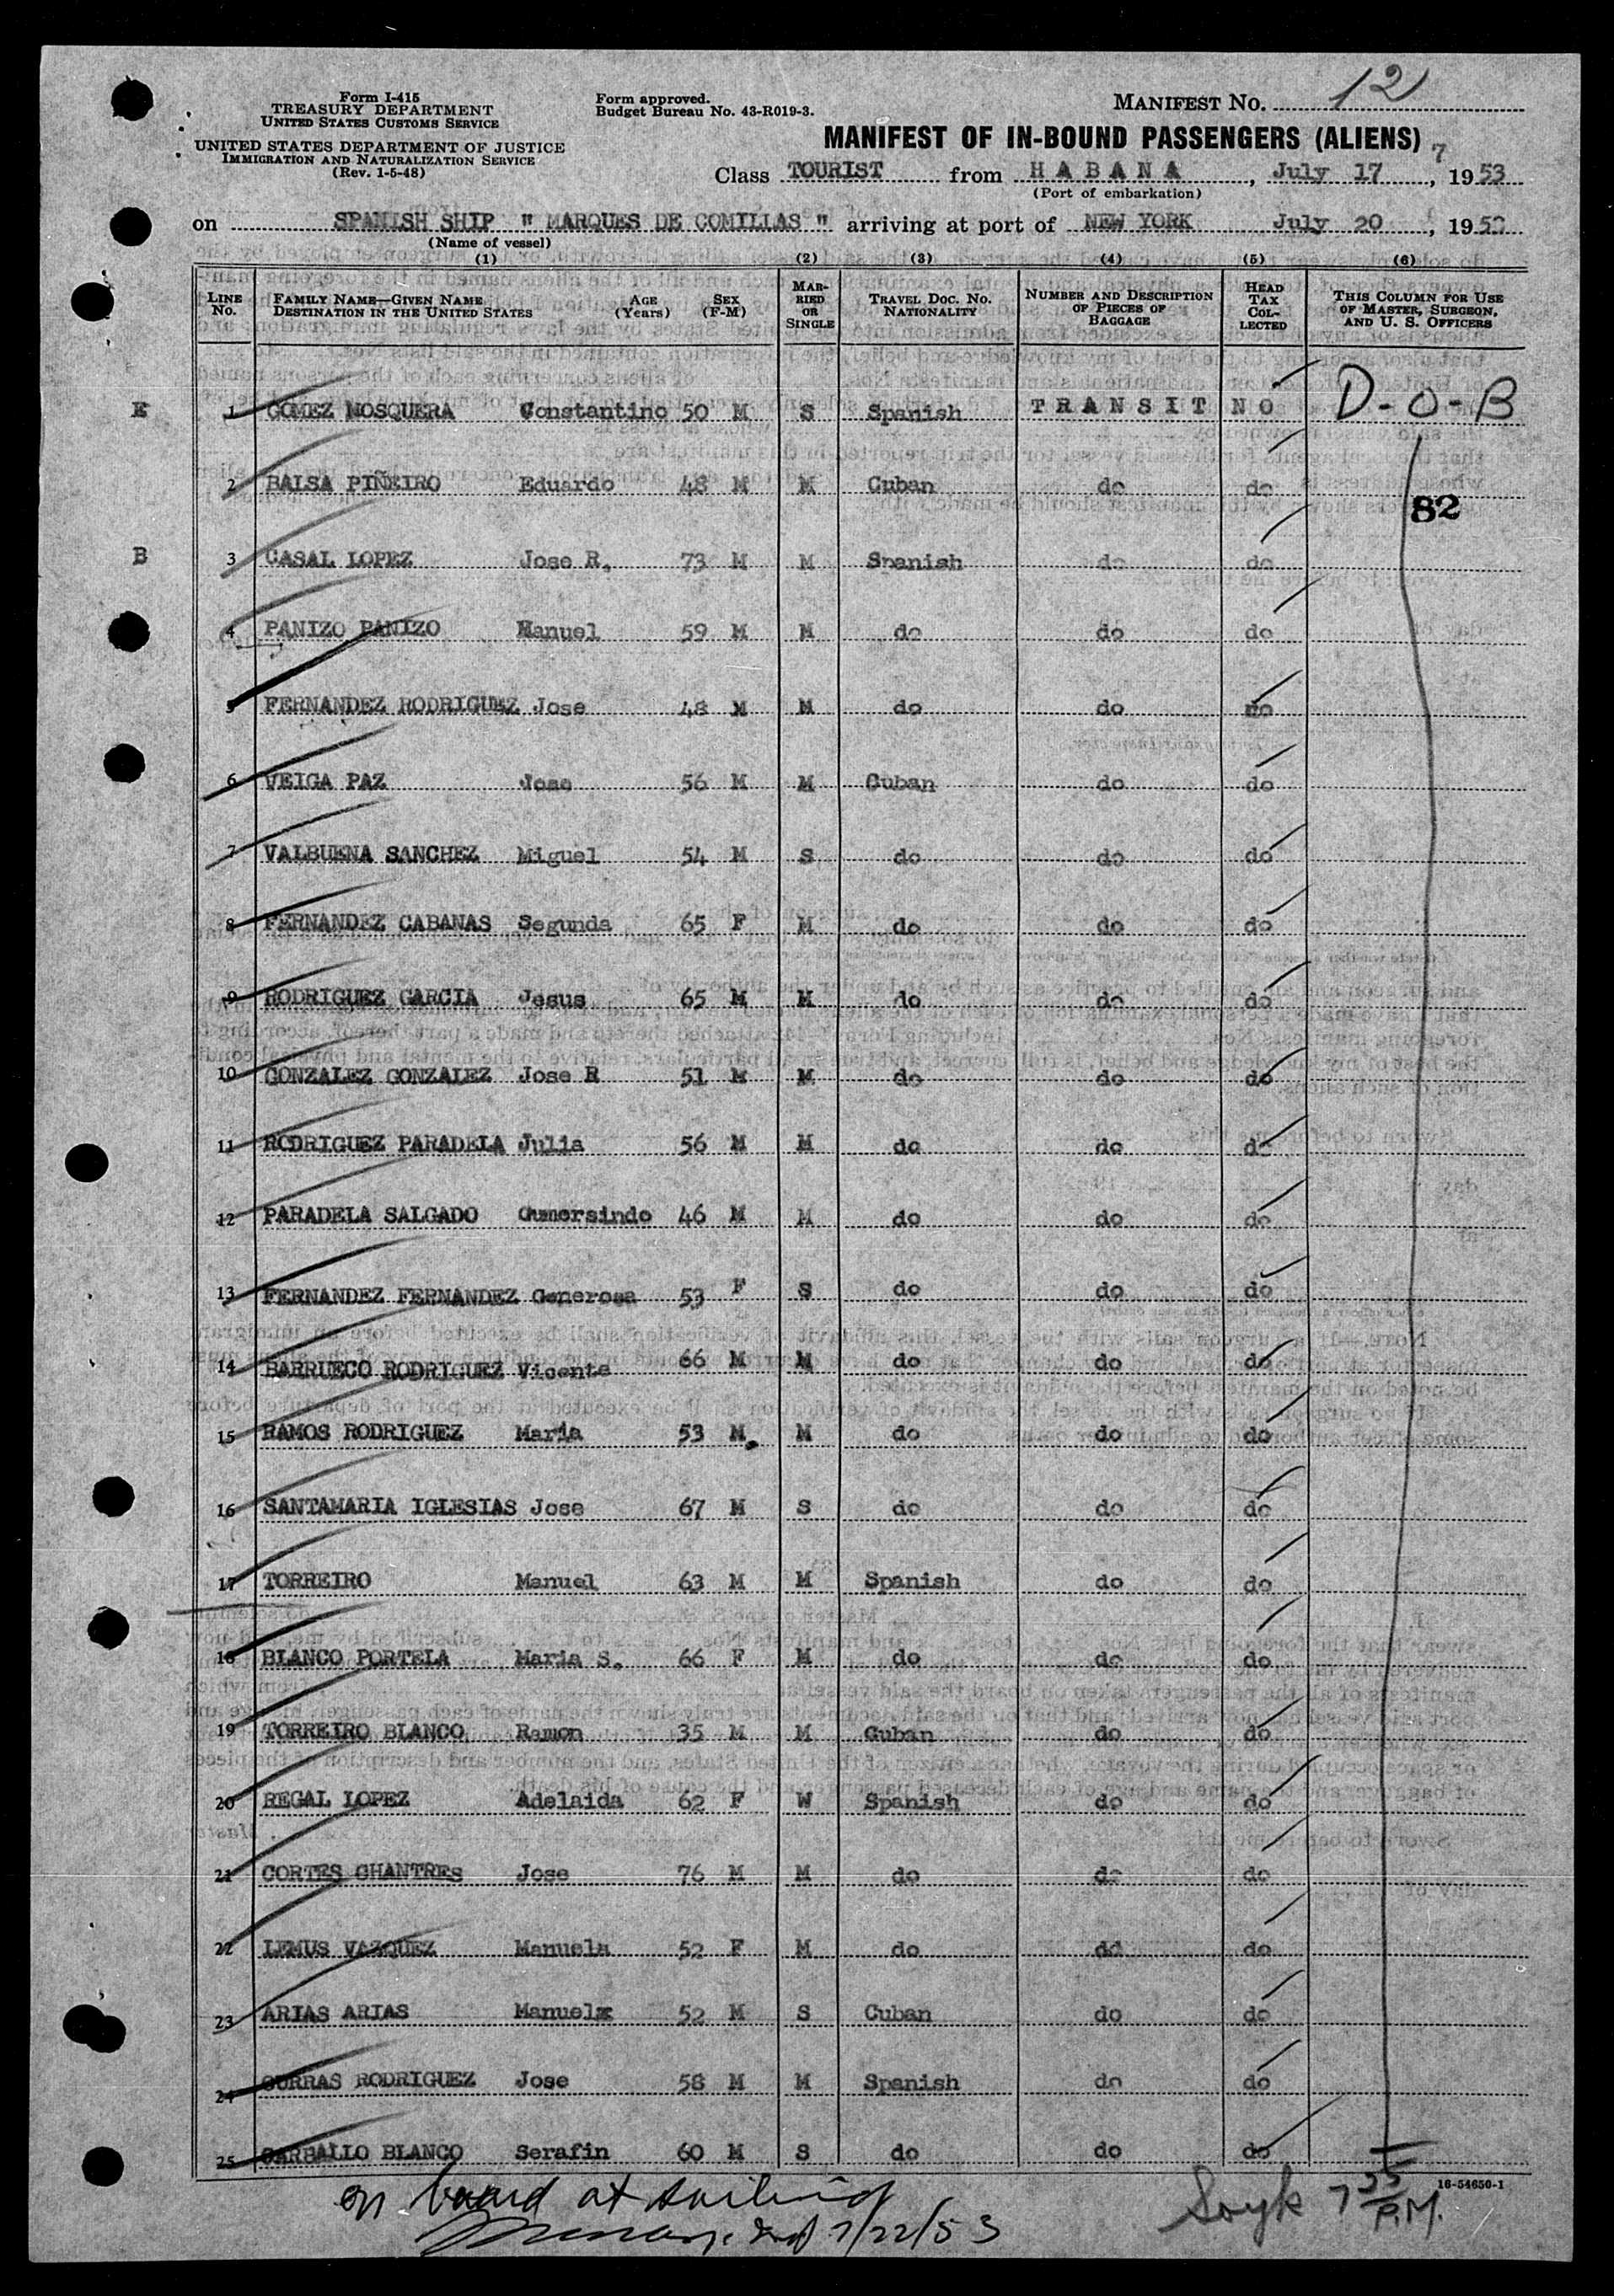 Form I-415
TREASURY DEPARTMENT
UNITED STATES CUSTOMS SERVICE
UNITED STATES DEPARTMENT OF JUSTICE
IMMIGRATION AND NATURALIZATION SERVICE
(Rev. 1-5-48)
Form approved.
Budget Bureau No. 43-R019-3.
MANIFEST NO. 12
MANIFEST OF IN-BOUND PASSENGERS (ALIENS) 7
Class TOURIST from HABANA, July 17, 1953
(Port of embarkation)
on SPANISH SHIP " MARQUES DE COMILLAS " arriving at port of NEW YORK July 20, 1953
(Name of vessel)
(1) (2) (3) (4) (5) (6)
LINE No. FAMILY NAME—GIVEN NAME DESTINATION IN THE UNITED STATES AGE (Years) SEX (F-M) MARRIED OR SINGLE TRAVEL DOC. NO. NATIONALITY NUMBER AND DESCRIPTION OF PIECES OF BAGGAGE HEAD TAX COLLECTED THIS COLUMN FOR USE OF MASTER, SURGEON, AND U. S. OFFICERS
E 1 GOMEZ MOSQUERA Constantino 50 M S Spanish TRANSIT NO D-O-B
2 BALSA PIÑEIRO Eduardo 48 M M Cuban do do
82
B 3 CASAL LOPEZ Jose R. 73 M M Spanish do do
4 PANIZO PANIZO Manuel 59 M M do do do
5 FERNANDEZ RODRIGUEZ Jose 48 M M do do no
6 VEIGA PAZ Jose 56 M M Cuban do do
7 VALBUENA SANCHEZ Miguel 54 M S do do do
8 FERNANDEZ CABANAS Segunda 65 F M do do do
9 RODRIGUEZ GARCIA Jesus 65 M M do do do
10 GONZALEZ GONZALEZ Jose R 51 M M do do do
11 RODRIGUEZ PARADELA Julia 56 M M do do do
12 PARADELA SALGADO Gumersindo 46 M M do do do
13 FERNANDEZ FERNANDEZ Generosa 53 F S do do do
14 BARRUECO RODRIGUEZ Vicente 66 M M do do do
15 RAMOS RODRIGUEZ Maria 53 M. M do do do
16 SANTAMARIA IGLESIAS Jose 67 M S do do do
17 TORREIRO Manuel 63 M M Spanish do do
18 BLANCO PORTELA Maria S. 66 F M do do do
19 TORREIRO BLANCO Ramon 35 M M Cuban do do
20 REGAL LOPEZ Adelaida 62 F W Spanish do do
21 CORTES CHANTRES Jose 76 M M do do do
22 LEMUS VAZQUEZ Manuela 52 F M do dd do
23 ARIAS ARIAS Manuelx 52 M S Cuban do do
24 CURRAS RODRIGUEZ Jose 58 M M Spanish do do
25 CARBALLO BLANCO Serafin 60 M S do do do
16-54650-1
on board at sailing
7/22/53
7 55 P.M.